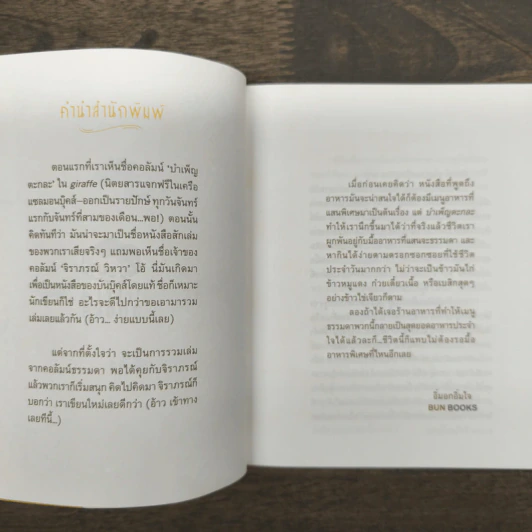 คำนำสำนักพิมพ์
ตอนแรกที่เราเห็นชื่อคอลัมน์ 'บำเพ็ญ
ตะกละ' ใน giraffe (นิตยสารแจกฟรีในเครือ
แซลมอนบุ๊คส์–ออกเป็นรายปักษ์ ทุกวันจันทร์
แรกกับจันทร์ที่สามของเดือน...พอ!) ตอนนั้น
คิดทันทีว่า มันน่าจะมาเป็นชื่อหนังสือสักเล่ม
ของพวกเราเสียจริงๆ แถมพอเห็นชื่อเจ้าของ
คอลัมน์ 'จิราภรณ์ วิหวา' โอ้ นี่มันเกิดมา
เพื่อเป็นหนังสือของบันบุ๊คส์โดยแท้ ชื่อก็เหมาะ
นักเขียนก็ใช่ อะไรจะดีไปกว่าขอเอามารวม
เล่มเลยแล้วกัน (อ้าว... ง่ายแบบนี้เลย)
แต่จากที่ตั้งใจว่า จะเป็นการรวมเล่ม
จากคอลัมน์ธรรมดา พอได้คุยกับจิราภรณ์
แล้วพวกเราก็เริ่มสนุก คิดไปคิดมา จิราภรณ์ก็
บอกว่า เราเขียนใหม่เลยดีกว่า (อ้าว เข้าทาง
เลยทีนี้...)
เมื่อก่อนเคยคิดว่า หนังสือที่พูดถึง
อาหารมันจะน่าสนใจได้ก็ต้องมีเมนูอาหารที่
แสนพิเศษมาเป็นต้นเรื่อง แต่ บำเพ็ญตะกละ
ทำให้เรานึกขึ้นมาได้ว่าที่จริงแล้วชีวิตเรา
ผูกพันอยู่กับมื้ออาหารที่แสนจะธรรมดา และ
หากินได้ง่ายตามตรอกซอกซอยที่ใช้ชีวิต
ประจำวันมากกว่า ไม่ว่าจะเป็นข้าวมันไก่
ข้าวหมูแดง ก๋วยเตี๋ยวเนื้อ หรือเบสิกสุดๆ
อย่างข้าวไข่เจียวก็ตาม
ลองถ้าได้เจอร้านอาหารที่ทำให้เมนู
ธรรมดาพวกนี้กลายเป็นสุดยอดอาหารประจำ
ใจได้แล้วละก็...ชีวิตนี้ก็แทบไม่ต้องรอมื้อ
อาหารพิเศษที่ไหนอีกเลย
อิ่มอกอิ่มใจ
BUN BOOKS